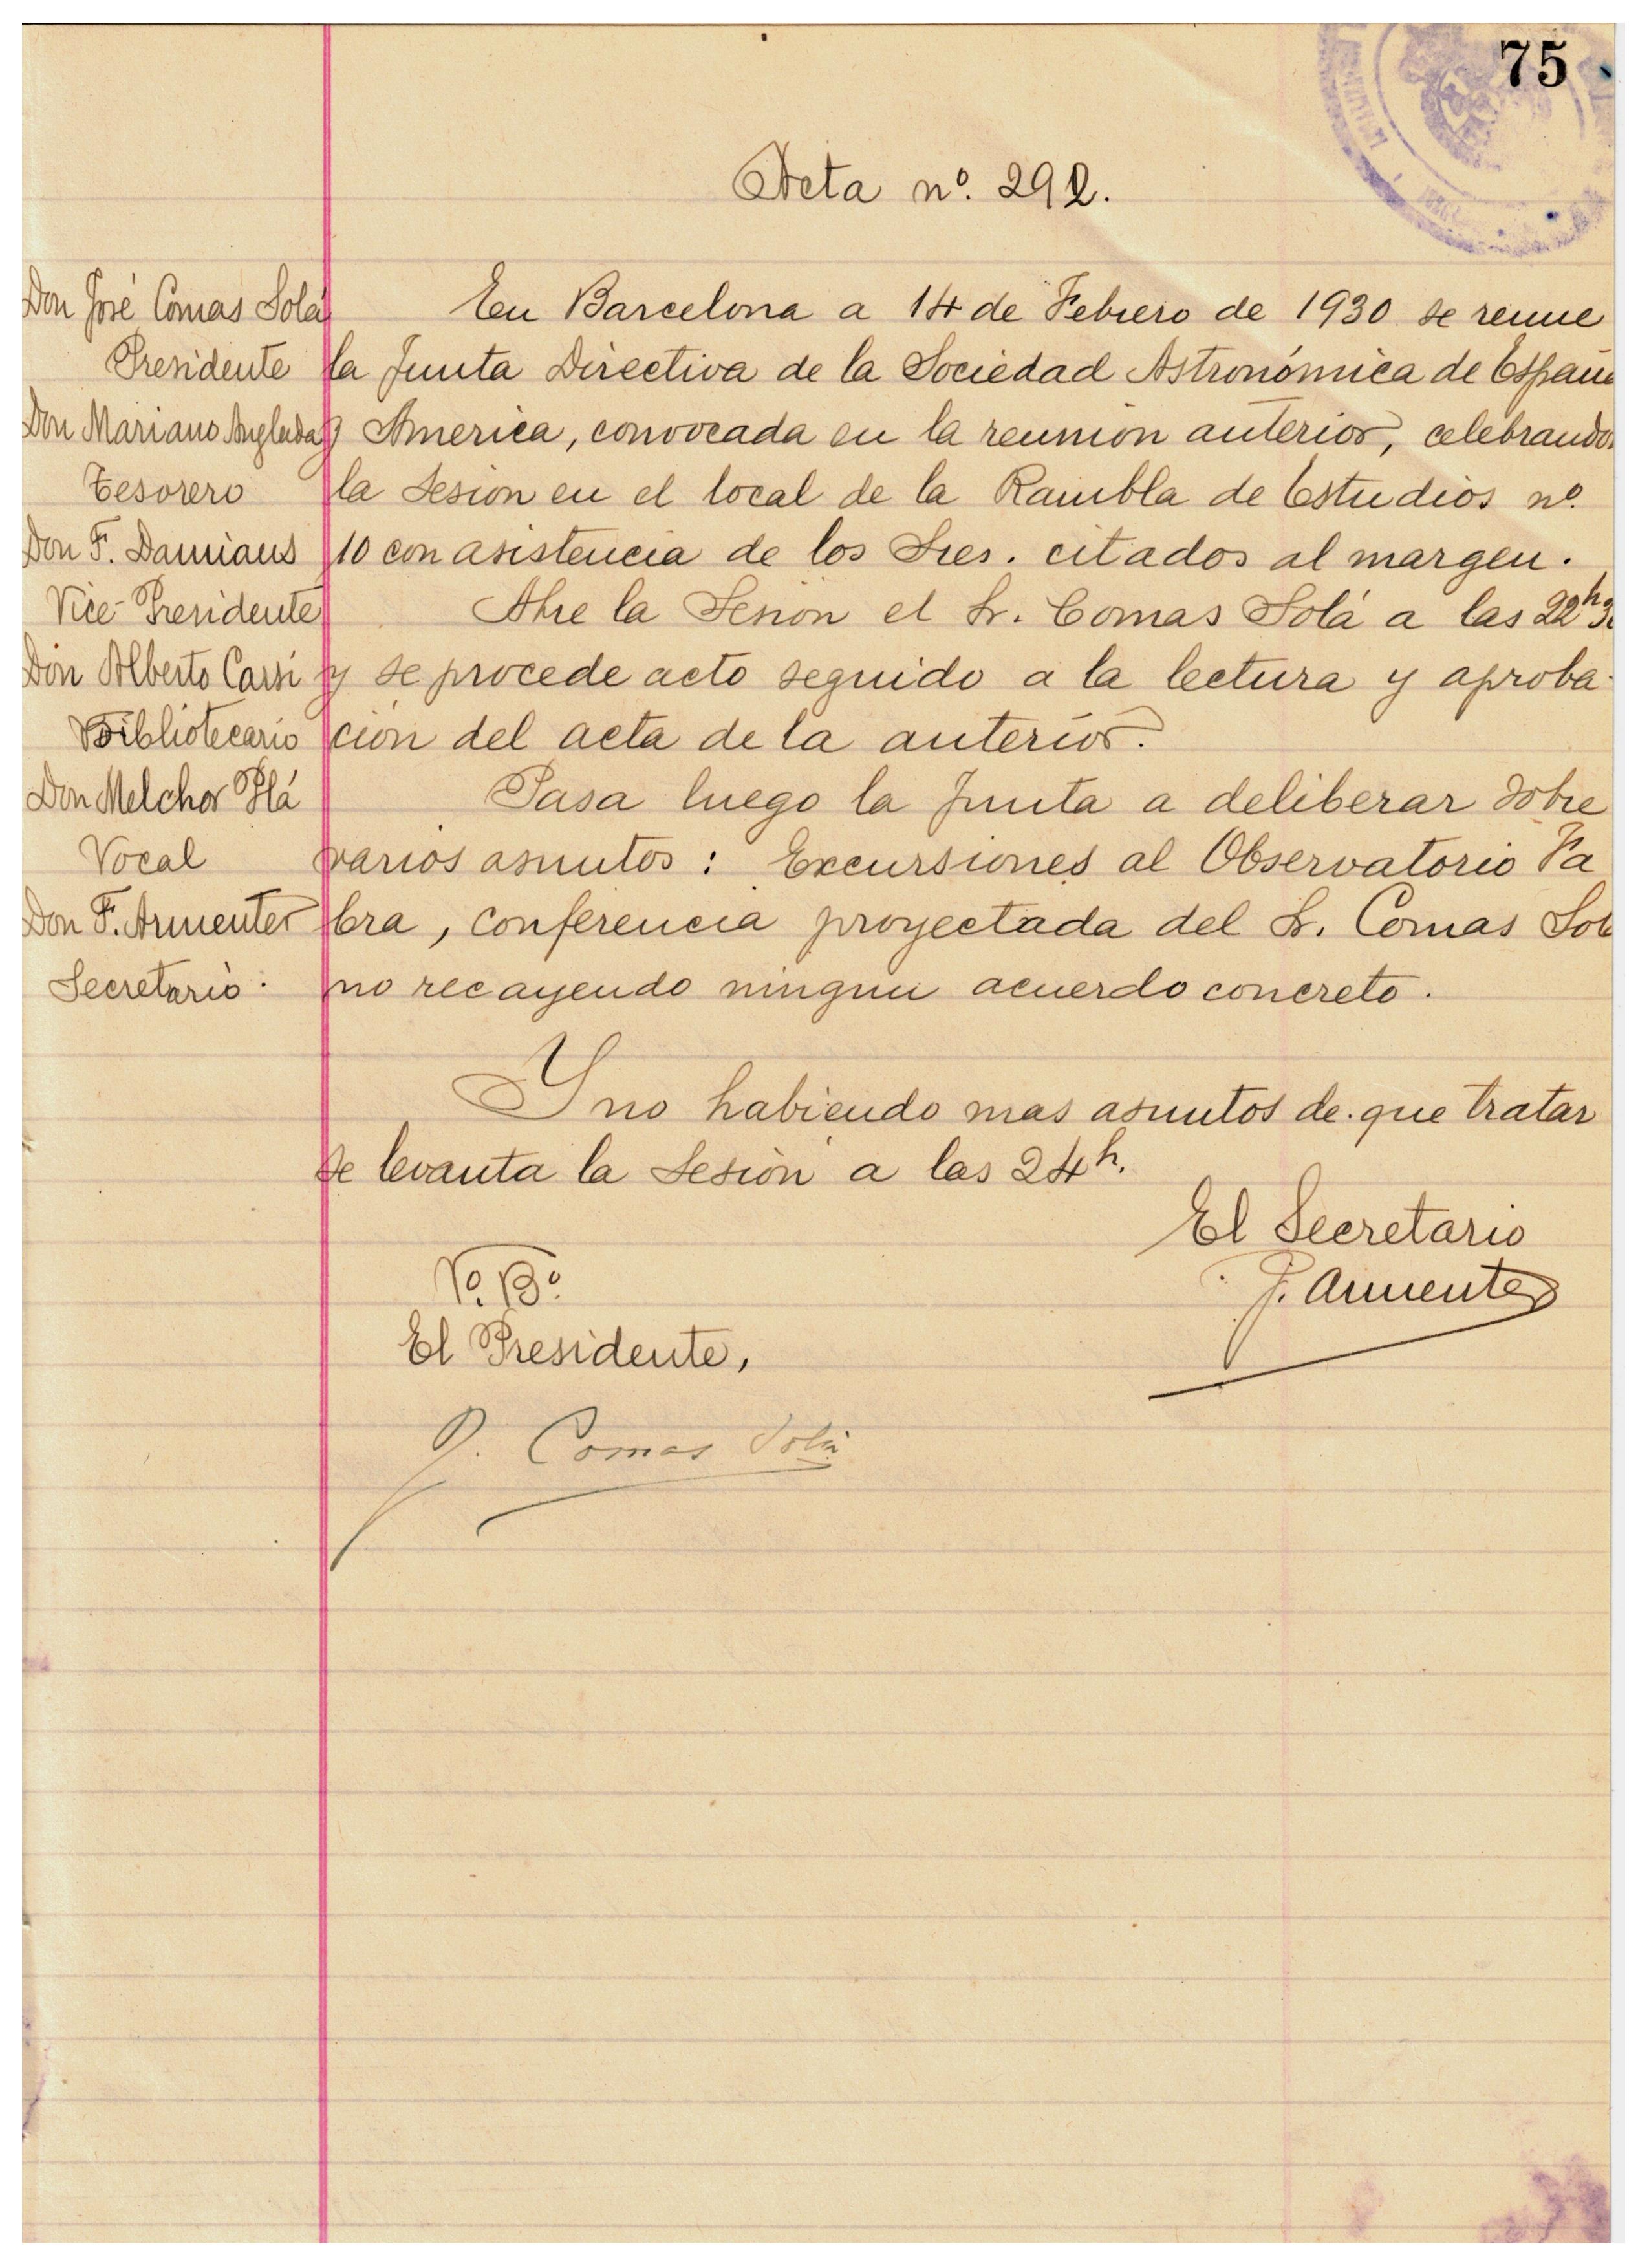 75
Acta nº. 292.
Don José Comas Solá
Presidente
Don Mariano Anglada
Tesorero
Don F. Damians
Vice-Presidente
Don Alberto Carsi
Bibliotecario
Don Melchor Plá
Vocal
Don F. Armenter
Secretario.
En Barcelona a 14 de Febrero de 1930 se reune
la Junta Directiva de la Sociedad Astronómica de España
y America, convocada en la reunion anterior, celebrando
la Sesion en el local de la Rambla de Estudios nº.
10 con asistencia de los Sres. citados al margen.
Abre la Sesion el Sr. Comas Solá a las 22h 30
y se procede acto seguido a la lectura y aproba-
cion del acta de la anterior.
Pasa luego la Junta a deliberar sobre
varios asuntos: Excursiones al Observatorio Fa
bra, conferencia proyectada del Sr. Comas Sol
no recayendo ningun acuerdo concreto.
Y no habiendo mas asuntos de que tratar
se levanta la Sesión a las 24h.
El Secretario
F. Armenter
Vº. Bº.
El Presidente,
J. Comas Solá